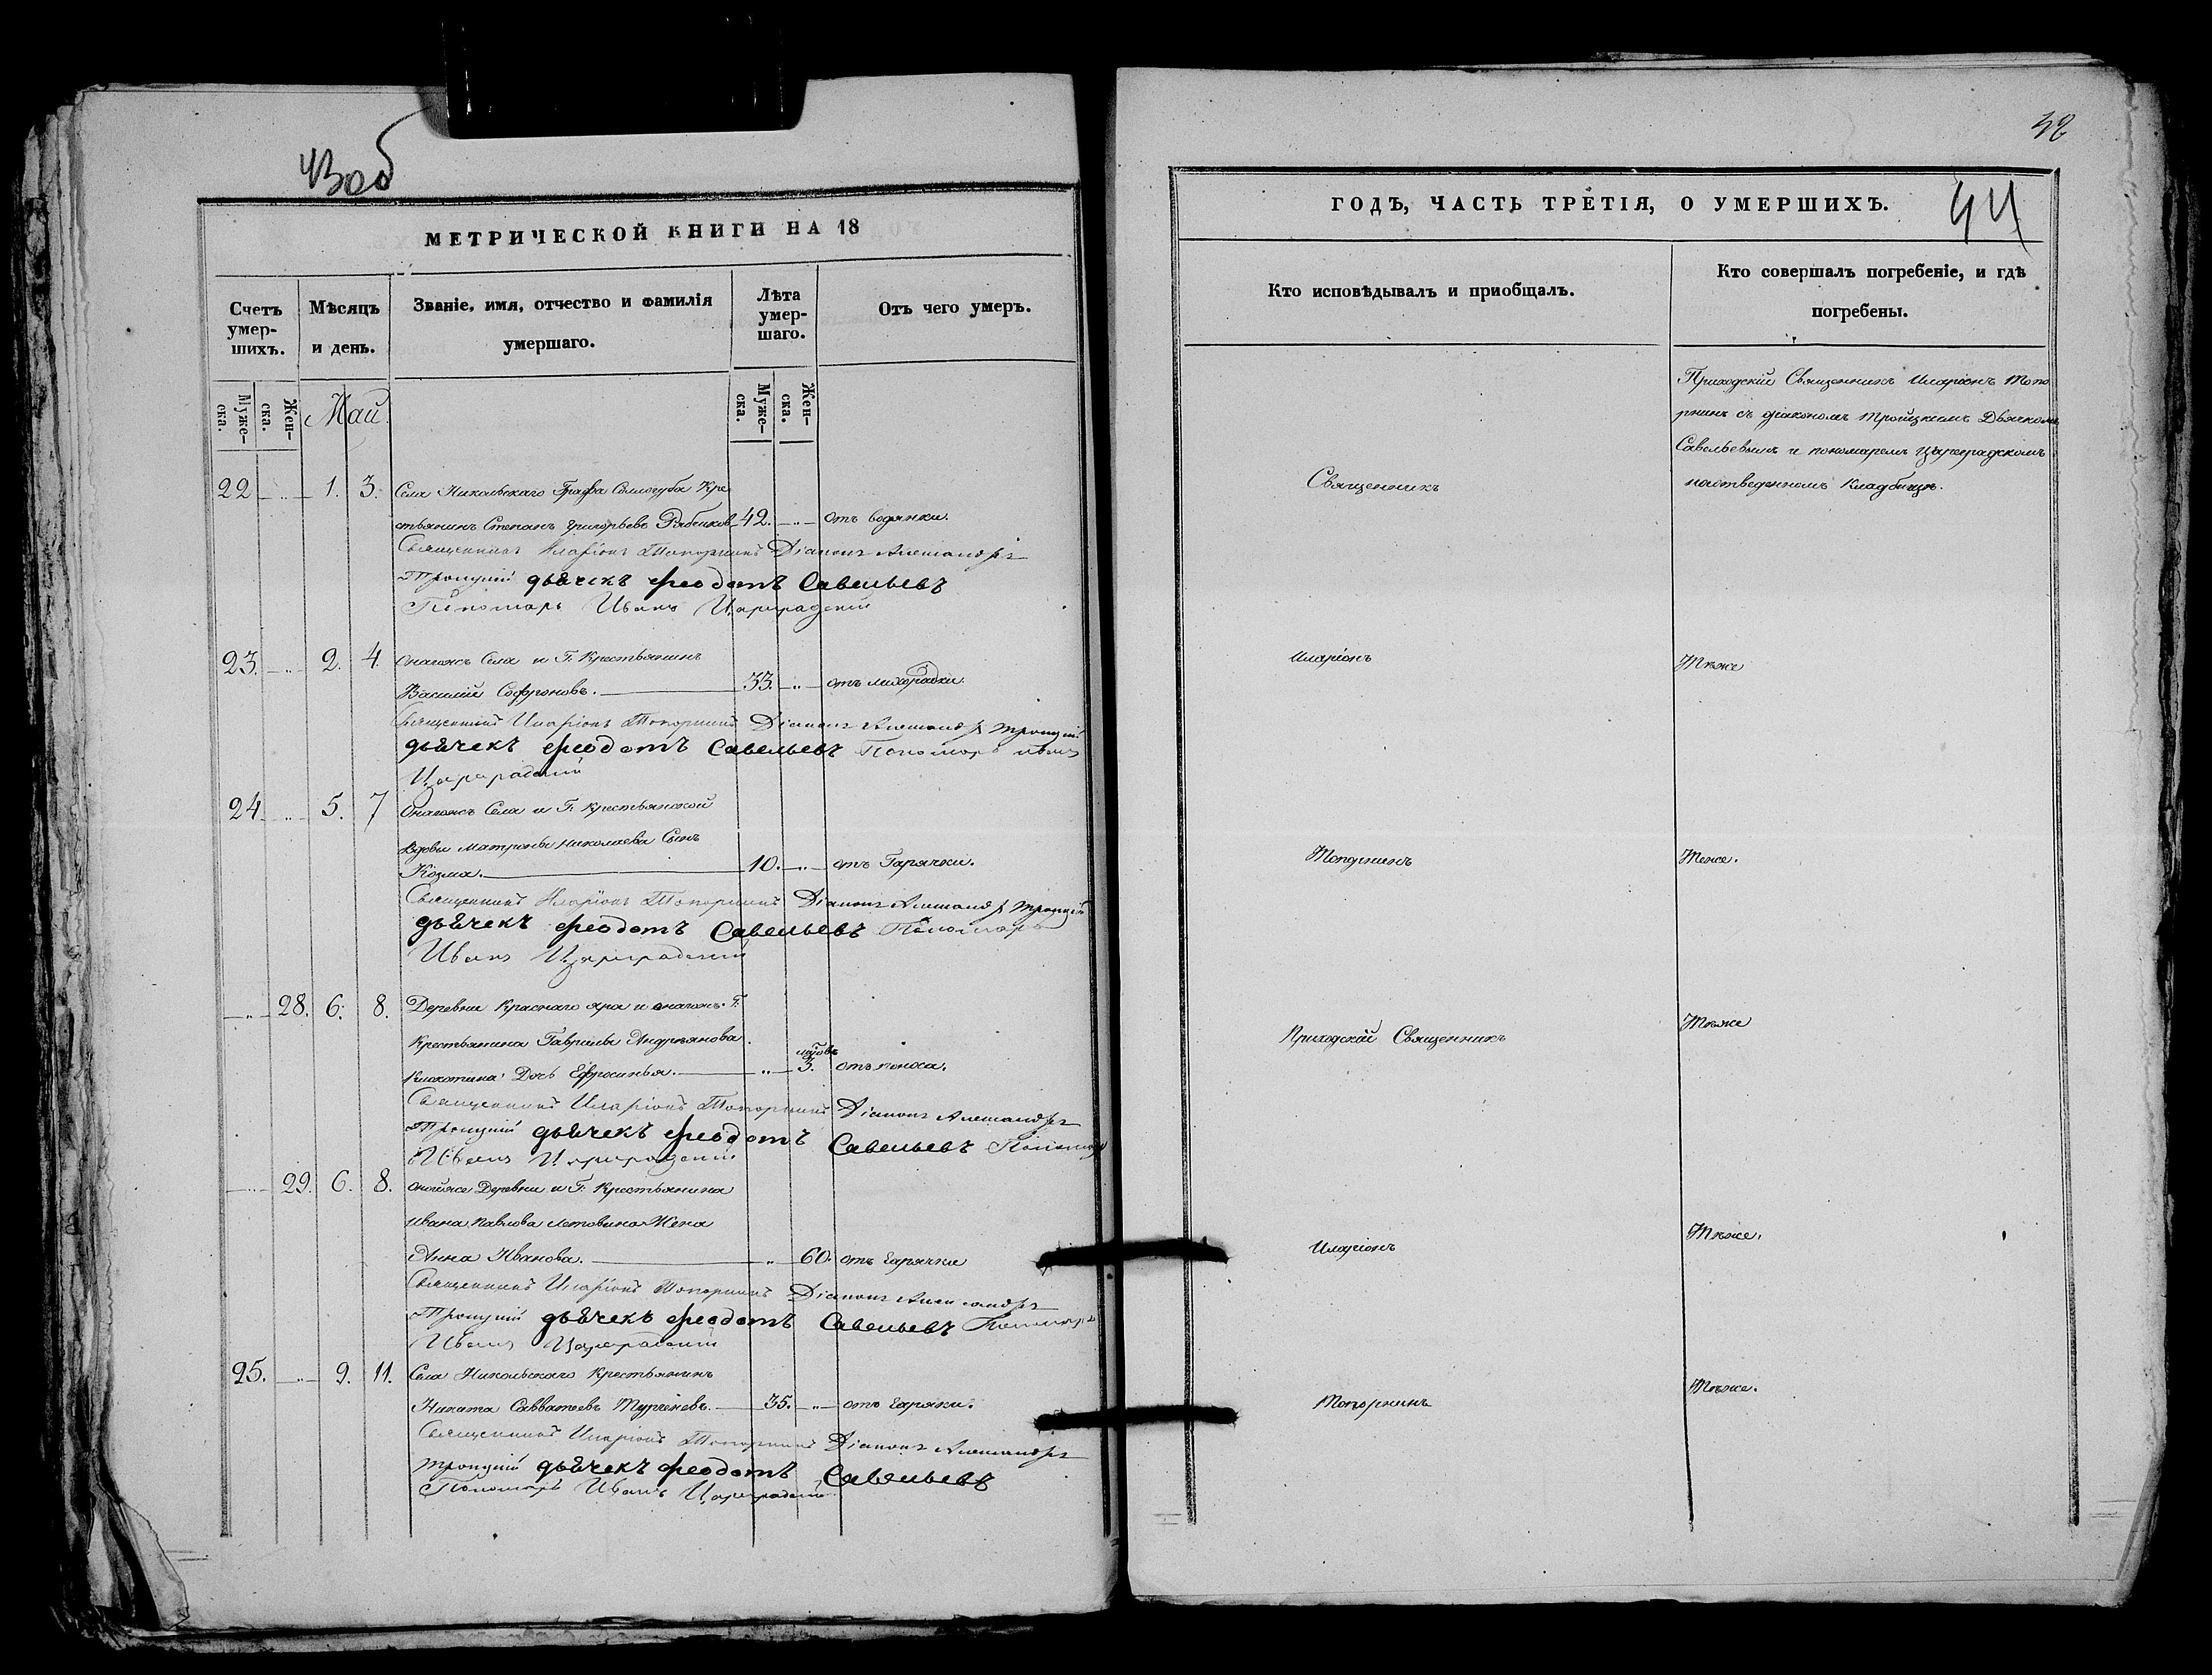 43об
МЕТРИЧЕСКОЙ КНИГИ НА 18
Счетъ умер-шихъ.
Мѣсяцъ и день.
Званіе, имя, отчество и фамилія умершаго.
Лѣта умер-шаго.
Отъ чего умеръ.
Муже-ска.
Жен-ска.
Май.
Муже-ска.
Жен-ска.
22 - „ - 1. 3. Села Никольскаго Графа Соллогуба Кре
стьянинъ Степанъ Григорьевъ Рябчиков 42. - „ - отъ водянки.
Священникъ Иларіонъ Топорнинъ Діаконъ Александръ
Троицкій дьячекъ Феодотъ Савельевъ
Пономарь Иванъ Цареградскій
23. - „ - 2. 4. Онагожъ Села и Г. Крестьянинъ
Василий Софроновъ. 33. - „ - отъ лихорадки.
Священникъ Иларіонъ Топорнинъ Діаконъ Александръ Троицкій
дьячекъ Феодотъ Савельевъ Пономарь Иванъ
Цареградскій
24. - „ - 5. 7 Онагожъ Села и Г. Крестьянской
Вдовы Матроны Николаева Сынъ
Козма. 10. - „ - отъ Гарячки.
Священникъ Иларіонъ Топорнинъ Діаконъ Александръ Троицкій
дьячекъ Феодотъ Савельевъ Пономарь
Иванъ Цареградскій
- „ - 28. 6. 8. Деревни Краснаго яра и онагожъ. Г.
Крестьянина Гаврилы Андреянова
Дочь Ефросинья. „ 3. отъ поноса.
Священникъ Иларіонъ Топорнинъ Діаконъ Александръ
Троицкій дьячекъ Феодотъ Савельевъ Пономарь
Иванъ Цареградскій
- „ - 29. 6. 8. онойже Деревни и Г. Крестьянина
Ивана Павлова Жена
Анна Иванова. „ 60. отъ гарячки
Священникъ Иларіонъ Топорнинъ Діаконъ Александръ
Троицкій дьячекъ Феодотъ Савельевъ Пономарь
Иванъ Цареградскій
25. - „ - 9. 11. Села Никольскаго Крестьянинъ
Никита Савватеевъ Турченевъ. 35. - „ - отъ гарячки.
Священникъ Иларіонъ Топорнинъ Діаконъ Александръ
Троицкій дьячекъ Феодотъ Савельевъ
Пономарь Иванъ Цареградскій
44
ГОДЪ, ЧАСТЬ ТРЕТІЯ, О УМЕРШИХЪ.
Кто исповѣдывалъ и приобщалъ.
Кто совершалъ погребеніе, и гдѣ
погребены.
Приходскій Священникъ Иларіонъ Топо
рнинъ съ діакономъ Троицкимъ Дьячкомъ
Савельевымъ и пономаремъ Цареградскомъ
наотведенномъ Кладбищѣ.
Священникъ
Иларіонъ Тѣже
Топорнинъ Тѣже.
Приходскій Священникъ Тѣже
Иларіонъ Тѣже.
Топорнинъ Тѣже.